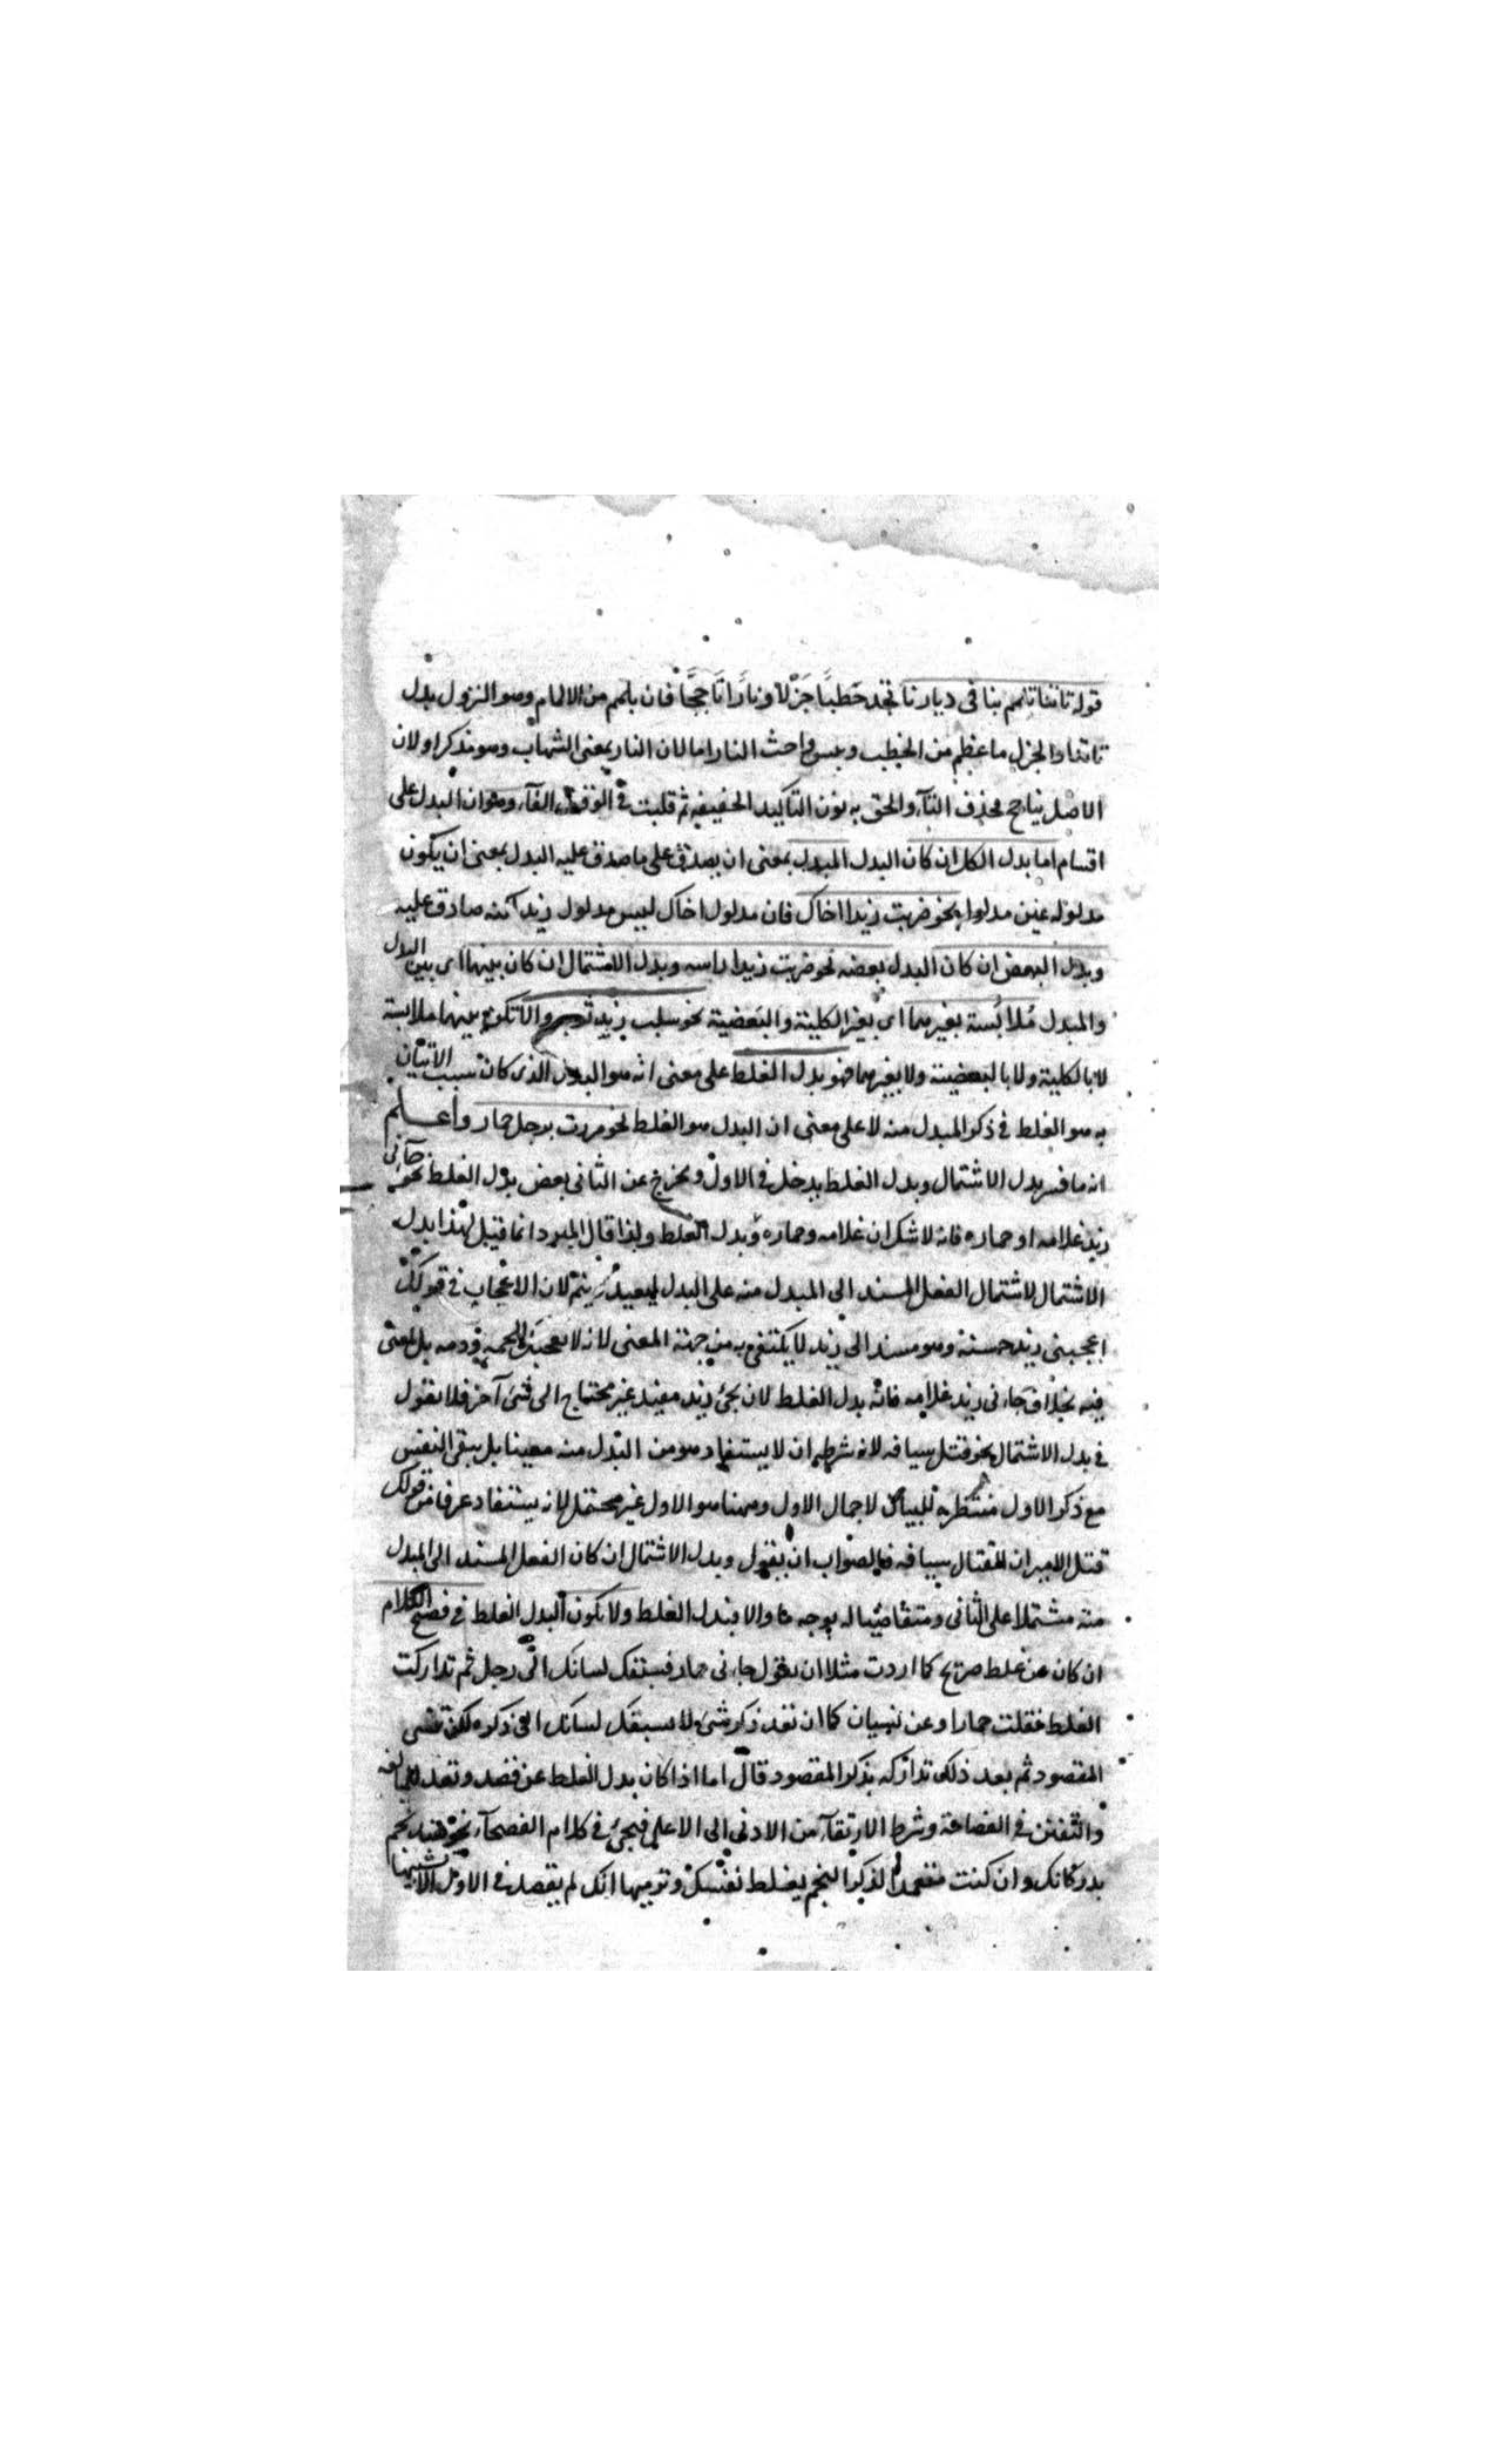 قوله تاتنا تلمم بنا فى ديارنا تجد حَطبًا جَزْلًا ونارًا تَاججَّا فان تلمم من الالمام وهو النزول بدل
تاتنا والجزل ما عظم من الحطب ويبس واحث النار اما لان النار بمعنى الشهاب وهو مذكر او لان
الاصل تتاجج فحذف التاء والحق به نون التاكيد الخفيفه ثم قلبت فى الوقف الفاء وهو ان البدل على
اقسام اما بدل الكل ان كان البدل المبدل بمعنى ان يصدق على ما صدق عليه البدل بمعنى ان يكون
مدلوله عين مدلوله نحو ضربت زيدا اخاك فان مدلول اخاك ليس مدلول زيد لكنه صادق عليه
وبدل البعض ان كان البدل بعضه نحو ضربت زيدا راسه وبدل الاشتمال ان كان بينهما اى بين البدل
والمبدل مُلابَسة بغيرهما اى بغير الكلية والبعضية نحو سلب زيد ثوبه والا تكون بينهما ملابسة
لا بالكلية ولا بالبعضية ولا بغيرهما فهو بدل الغلط على معنى انه هو البدل الذى كان سبب الاتيان
به هو الغلط فى ذكر المبدل منه لا على معنى ان البدل هو الغلط نحو مررت برجل حمار واعلم
انه ما فسر بدل الاشتمال وبدل الغلط يدخل فى الاول ويخرج عن الثانى بعض بدل الغلط نحو جاءنى
زيد غلامه او حماره فانه لا شك ان غلامه وحماره بدل الغلط ولذا قال المبرد انما قيل لهذا بدل
الاشتمال لاشتمال الفعل المسند الى المبدل منه على البدل ليفيد ويتم لان الاعجاب فى قولك
اعجبنى زيد حسنه وهو مسند الى زيد لا يكتفى به من جهة المعنى لانه لا يعجبك لحمه ودمه بل لمعنى
فيه بخلاف جاءنى زيد غلامه فانه بدل الغلط لان مجئ زيد مفيد غير محتاج الى شئ آخر فلا نقول
فى بدل الاشتمال نحو قتل سيافه لان شرطه ان لا يستفاد هو من المبدل منه معينا بل يبقى النفس
مع ذكر الاول منتظرة للبيان لاجمال الاول وههنا هو الاول غير محتمل لانه يستفاد عرفا من قولك
قتل الامير ان القتال سيافه فالصواب ان يقول وبدل الاشتمال ان كان الفعل المسند الى المبدل
منه مشتملا على الثانى ومتقاضيا له بوجه ما والا فبدل الغلط ولا يكون البدل الغلط فى فصيح الكلام
ان كان عن غلط صريح كما اردت مثلا ان تقول جاءنى حمار فسبقك لسانك الى رجل ثم تداركت
الغلط فقلت حمار او عن نسيان كما ان تقصد ذكر شئ لا يسبقك لسانك الى ذكره لكن تنسى
المقصود ثم بعد ذلك تداركه بذكر المقصود قال اما اذا كان بدل الغلط عن قصد وتعمد للمبالغه
والتفنن فى الفصاحة وشرط الارتقاء من الادنى الى الاعلى فيجئ فى كلام الفصحاء نحو هند نجم
بدر كانك وان كنت متعمدا لذكر النجم يغلط نفسك وتوهيها انك لم يقصد فى الاول الا تشبيهها